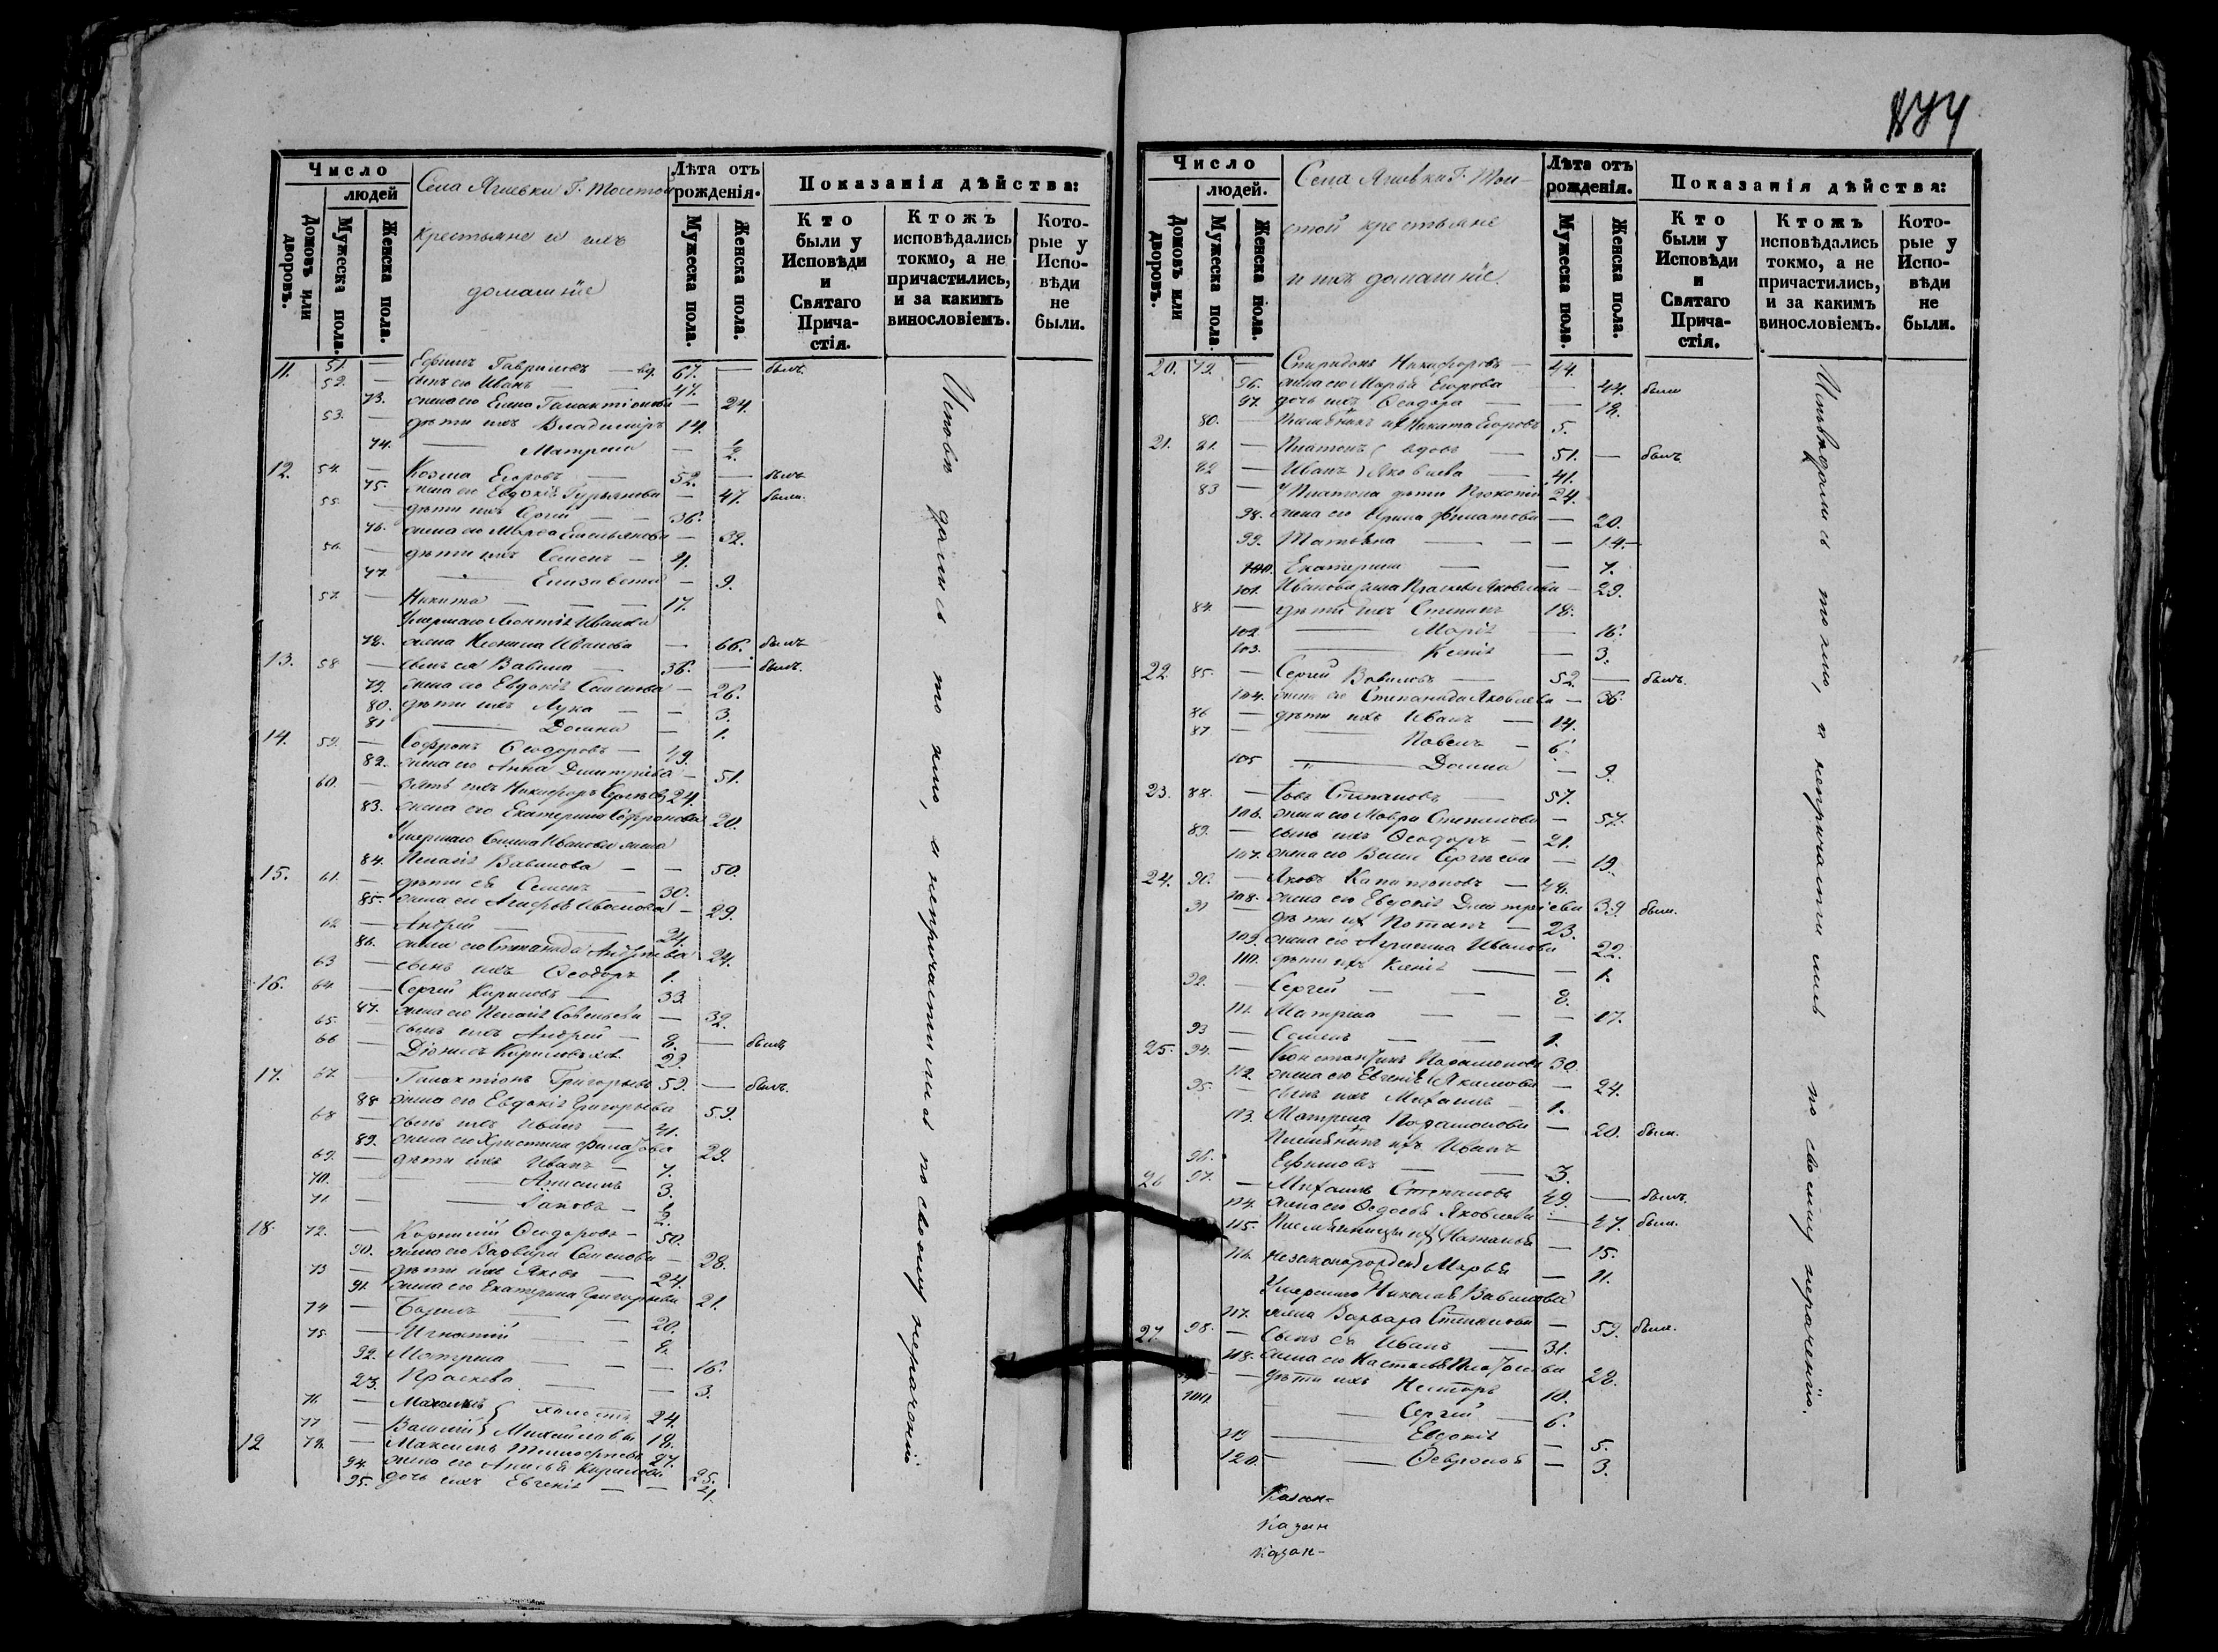 Число
людей
Домовъ или дворовъ.
Мужеска пола.
Женска пола.
Села Г. Толстой
крестьяне и ихъ
домашніе
Лѣта отъ рожденія.
Мужеска пола.
Женска пола.
Показанія дѣйства:
Кто были у Исповѣди и Святаго Причастія.
Ктожъ исповѣдались токмо, а не причастились, и за какимъ винословіемъ.
Которые у Исповѣди не были.
11. 51. — Ефимъ Гавриловъ — вд. 67. — былъ.
52. — сынъ его Иванъ — 47.
73. жена его Елена Галактіонова — 24.
53. — дѣти ихъ Владимiръ 14.
74. — Матрена — ½.
12. 54. — Козма Егоровъ — 52. — былъ
75. жена его Евдокія Гурьянова — 47. была.
55. — дѣти ихъ Сергій — 36.
76. жена его Марѳа Емельянова — 32.
56. — дѣти ихъ Семенъ — 4.
77. — Елизавета — 9.
57. — Никита — 17.
Умершаго Леонтія Иванова
78. жена Ивановa — 66. былъ
13. 58 — сынъ ея Вавила — 36. — былъ.
79. жена его Евдокія Семенова — 26.
80. дѣти ихъ Лука — — 3.
81 — Домна — 1.
14. 59. — Софронъ Ѳеодоровъ — 49.
82. жена его Анна Дмитріева — 51.
60. — зять ихъ Никифоръ Сергѣевъ 24.
83. жена его Екатерина Софронова 20.
Умершаго Ивановa жена
84. Пелагія Вавилова — — 50.
15. 61. — дѣти ея Семенъ — 30.
85. жена его — 29.
62 — Андрей — 24.
86. жена его Степанида Андреева 24.
63 — сынъ ихъ Ѳеодоръ 1.
16. 64. — Сергій Кириловъ — 33.
87. жена его Пелагія Савельева — 32.
65. — сынъ ихъ Андрей — 8. — былъ
66 — Діонисъ Кириловъ 23.
17. 67. — Галактіонъ Григорьевъ 59. — былъ.
88 жена его Евдокія Григорьева 59.
68 — сынъ ихъ Иванъ — 31.
89. жена его Христина Филатова 29.
69. — дѣти ихъ Иванъ — 7.
70. — 3.
71 — Іаковъ — ½.
18 72. — Корнилій Ѳеодоровъ — 50.
90. жена его Варвара Семенова — 28.
73 — дѣти ихъ Яковъ — 24.
91. жена его Екатерина Григорьева 21.
74 — — 20.
75. — Игнатій — 8.
92. Матрена — — 16.
93. Праскева — 3.
76. — холостъ 24.
77 — Василій Михайловы 18.
19 78. — Максимъ Тимофеевъ 27.
94. жена его Кирилова 25.
95. дочь ихъ Евгенія — — 21.
Исповѣдались токмо, а непричастились по своему нераченію
Число
людей.
Домовъ или дворовъ.
Мужеска пола.
Женска пола.
Села Г. Тол-
стой крестьяне
и ихъ домашніе.
Лѣта отъ рожденія.
Мужеска пола.
Женска пола.
Показанія дѣйства:
Кто были у Исповѣди и Святаго Причастія.
Ктожъ исповѣдались токмо, а не причастились, и за какимъ винословіемъ.
Которые у Исповѣди не были.
20. 79. — Спиридонъ Никифоровъ — 44.
96. жена его Марья Егорова — 44. была
97. дочь ихъ Ѳеодора — — 12.
80. — Племянникъ ихъ Никита Егоровъ 5.
21. 81. — Платонъ вдовъ — 51. — былъ
82 — Иванъ Яковлева — 41.
83 — У Платона дѣти Прокопій 24.
98. жена его Ирина Филатова — 20.
99. Татьяна — — 14.
100. Екатерина — — 7.
101. Иванова жена Праскева Яковлева — 29.
84. — дѣти ихъ Степанъ 18.
102. — Марія — 16.
103. — Ксенія — 3.
22 85. — Сергій Вавиловъ — 52. — былъ.
104. жена его Степанида Яковлева — 36.
86 — дѣти ихъ Иванъ — 14.
87 — Павелъ — 6.
105 — Домна — 9.
23. 88. — Іовъ Степановъ — 57.
106. жена его Мавра Степанова — 57.
89. — сынъ ихъ Ѳеодоръ — 21.
107. жена его Сергѣева — 19.
24. 90. — Яковъ Капитоновъ — 48.
108. жена его Евдокія Дмитріева 39 была.
91 — дѣти ихъ Потапъ — 23.
109. жена его Агрипина Иванова 22.
110. дѣти ихъ Ксенія — — 1.
92. — Сергій — — 8.
111. Матрена — — — 17.
93 — Семенъ — — 1.
25. 94. — Константинъ Парамоновъ 30.
112. жена его Евгенія Акимова — 24.
95. — сынъ ихъ Михаилъ — 1.
113. Матрена Парамонова — 20. была.
Племянникъ ихъ Иванъ
96. Ефимовъ — — 3.
26 97. — Михаилъ Степановъ 49. — былъ.
114. жена его Ѳедосья Яковлева — 47. была.
115. Племянницы ихъ Наталья — 15.
116. незаконорожден Марья — 11.
Умершаго Николая Вавилова
117. жена Варвара Степанова — 59. была.
27. 98. — Сынъ ея Иванъ — 31.
118. жена его Настасья Платонова 28.
— дѣти ихъ Несторъ 10.
100. — Сергій — 6.
119 — Евдокія — 5.
120. — Ѳевронья — 3.
Исповѣдались токмо, а непричастились по своему нераченію.
Казан-
Казан
Казан-